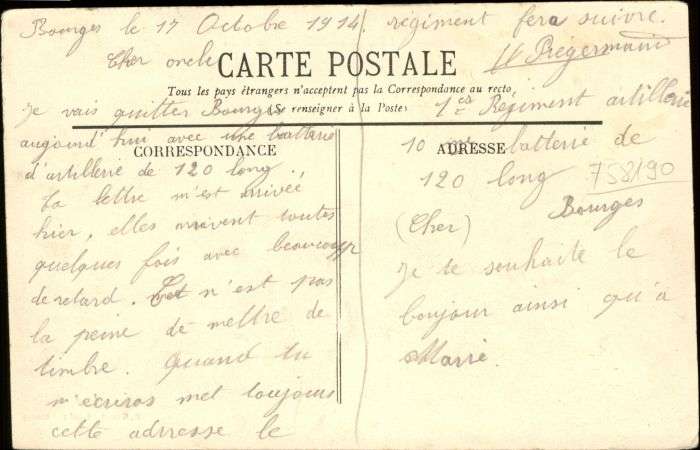 Bourges le 17 Octobre 1914.
Cher oncle
CARTE POSTALE
Tous les pays étrangers n'acceptent pas la Correspondance au recto
(Se renseigner à la Poste)
Je vais quitter Bourges
aujourd'hui avec une batterie
CORRESPONDANCE
d'artillerie de 120 long.
Ta lettre m'est arrivée
hier, elles arrivent toutes
quelques fois avec beaucoup
de retard. n'est pas
la peine de mettre de
timbre. Quand tu
m'écriras met toujours
cette adrresse le
régiment fera suivre.
1er Régiment artillerie
ADRESSE
10 batterie de
120 long
758190
Bourges
(Cher)
Je te souhaite le
bonjour ainsi qu'à
Marie.